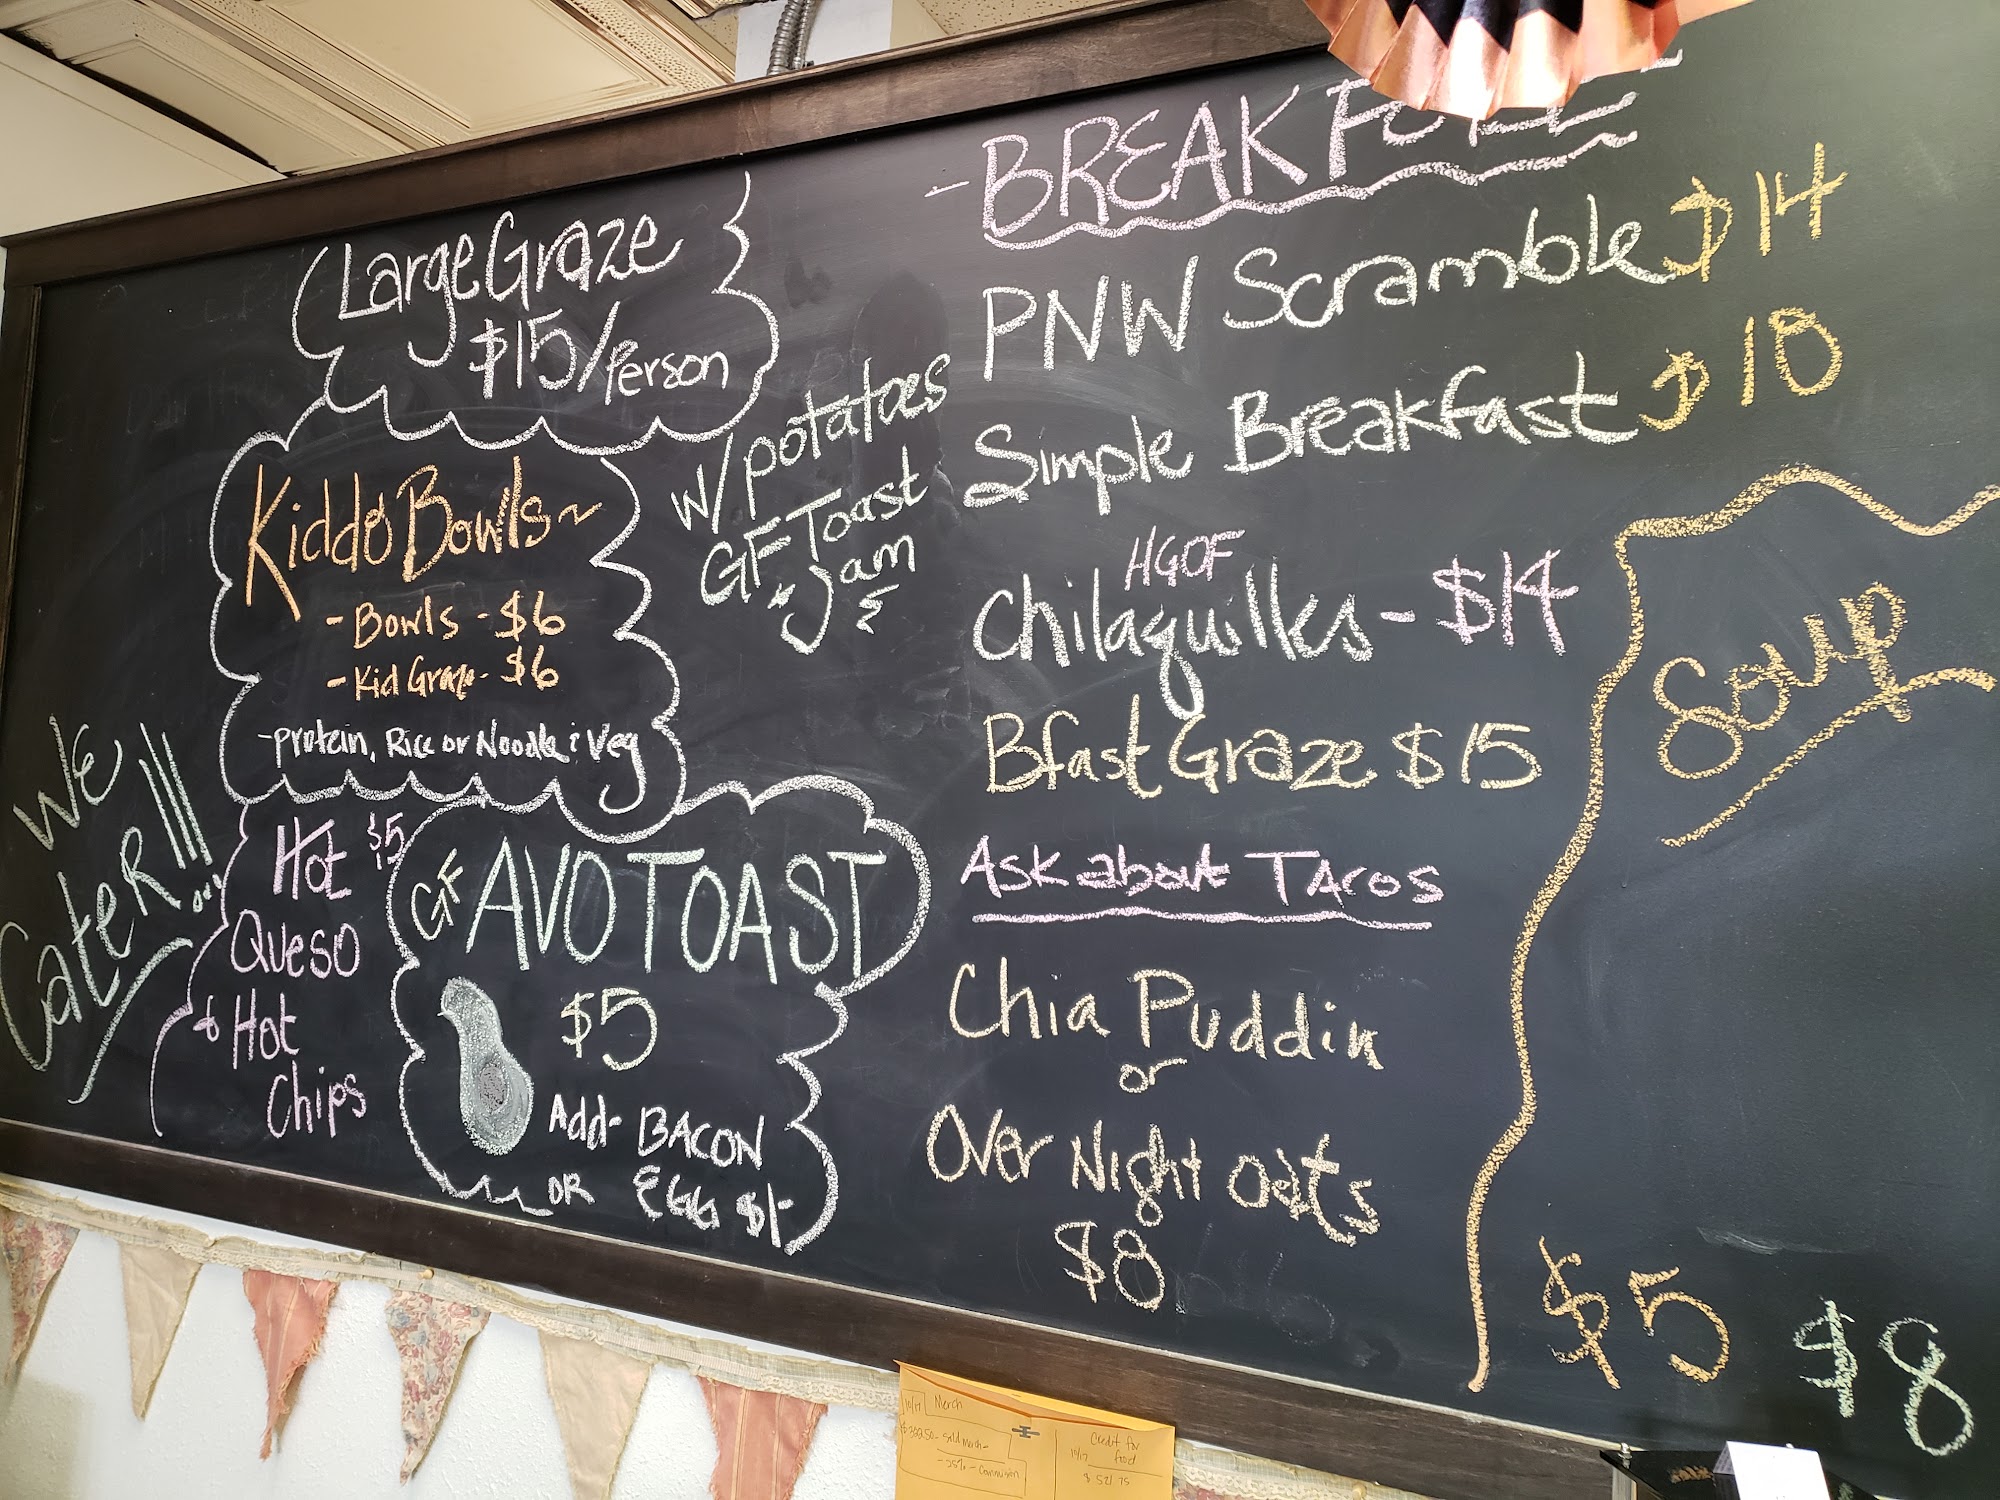 Large Graze
$15/Person
Kiddo Bowls~
- Bowls - $6
- Kid Graze - $6
- protein, Rice or Noodle & Veg
We
Cater!!!
Hot $5
Queso
& Hot
Chips
GF AVO TOAST
$5
Add - BACON
OR EGG $1-
w/potatoes
GF Toast
& Jam
- BREAK
PNW Scramble $14
Simple Breakfast $10
HGOF
Chilaquilles - $14
Bfast Graze $15
Ask about TAcos
Chia Puddin
or
Over Night Oats
$8
Soup
$5
$8
10/17 Merch
- 25% - Commision
Credit for
10/17 food
$ 521.75